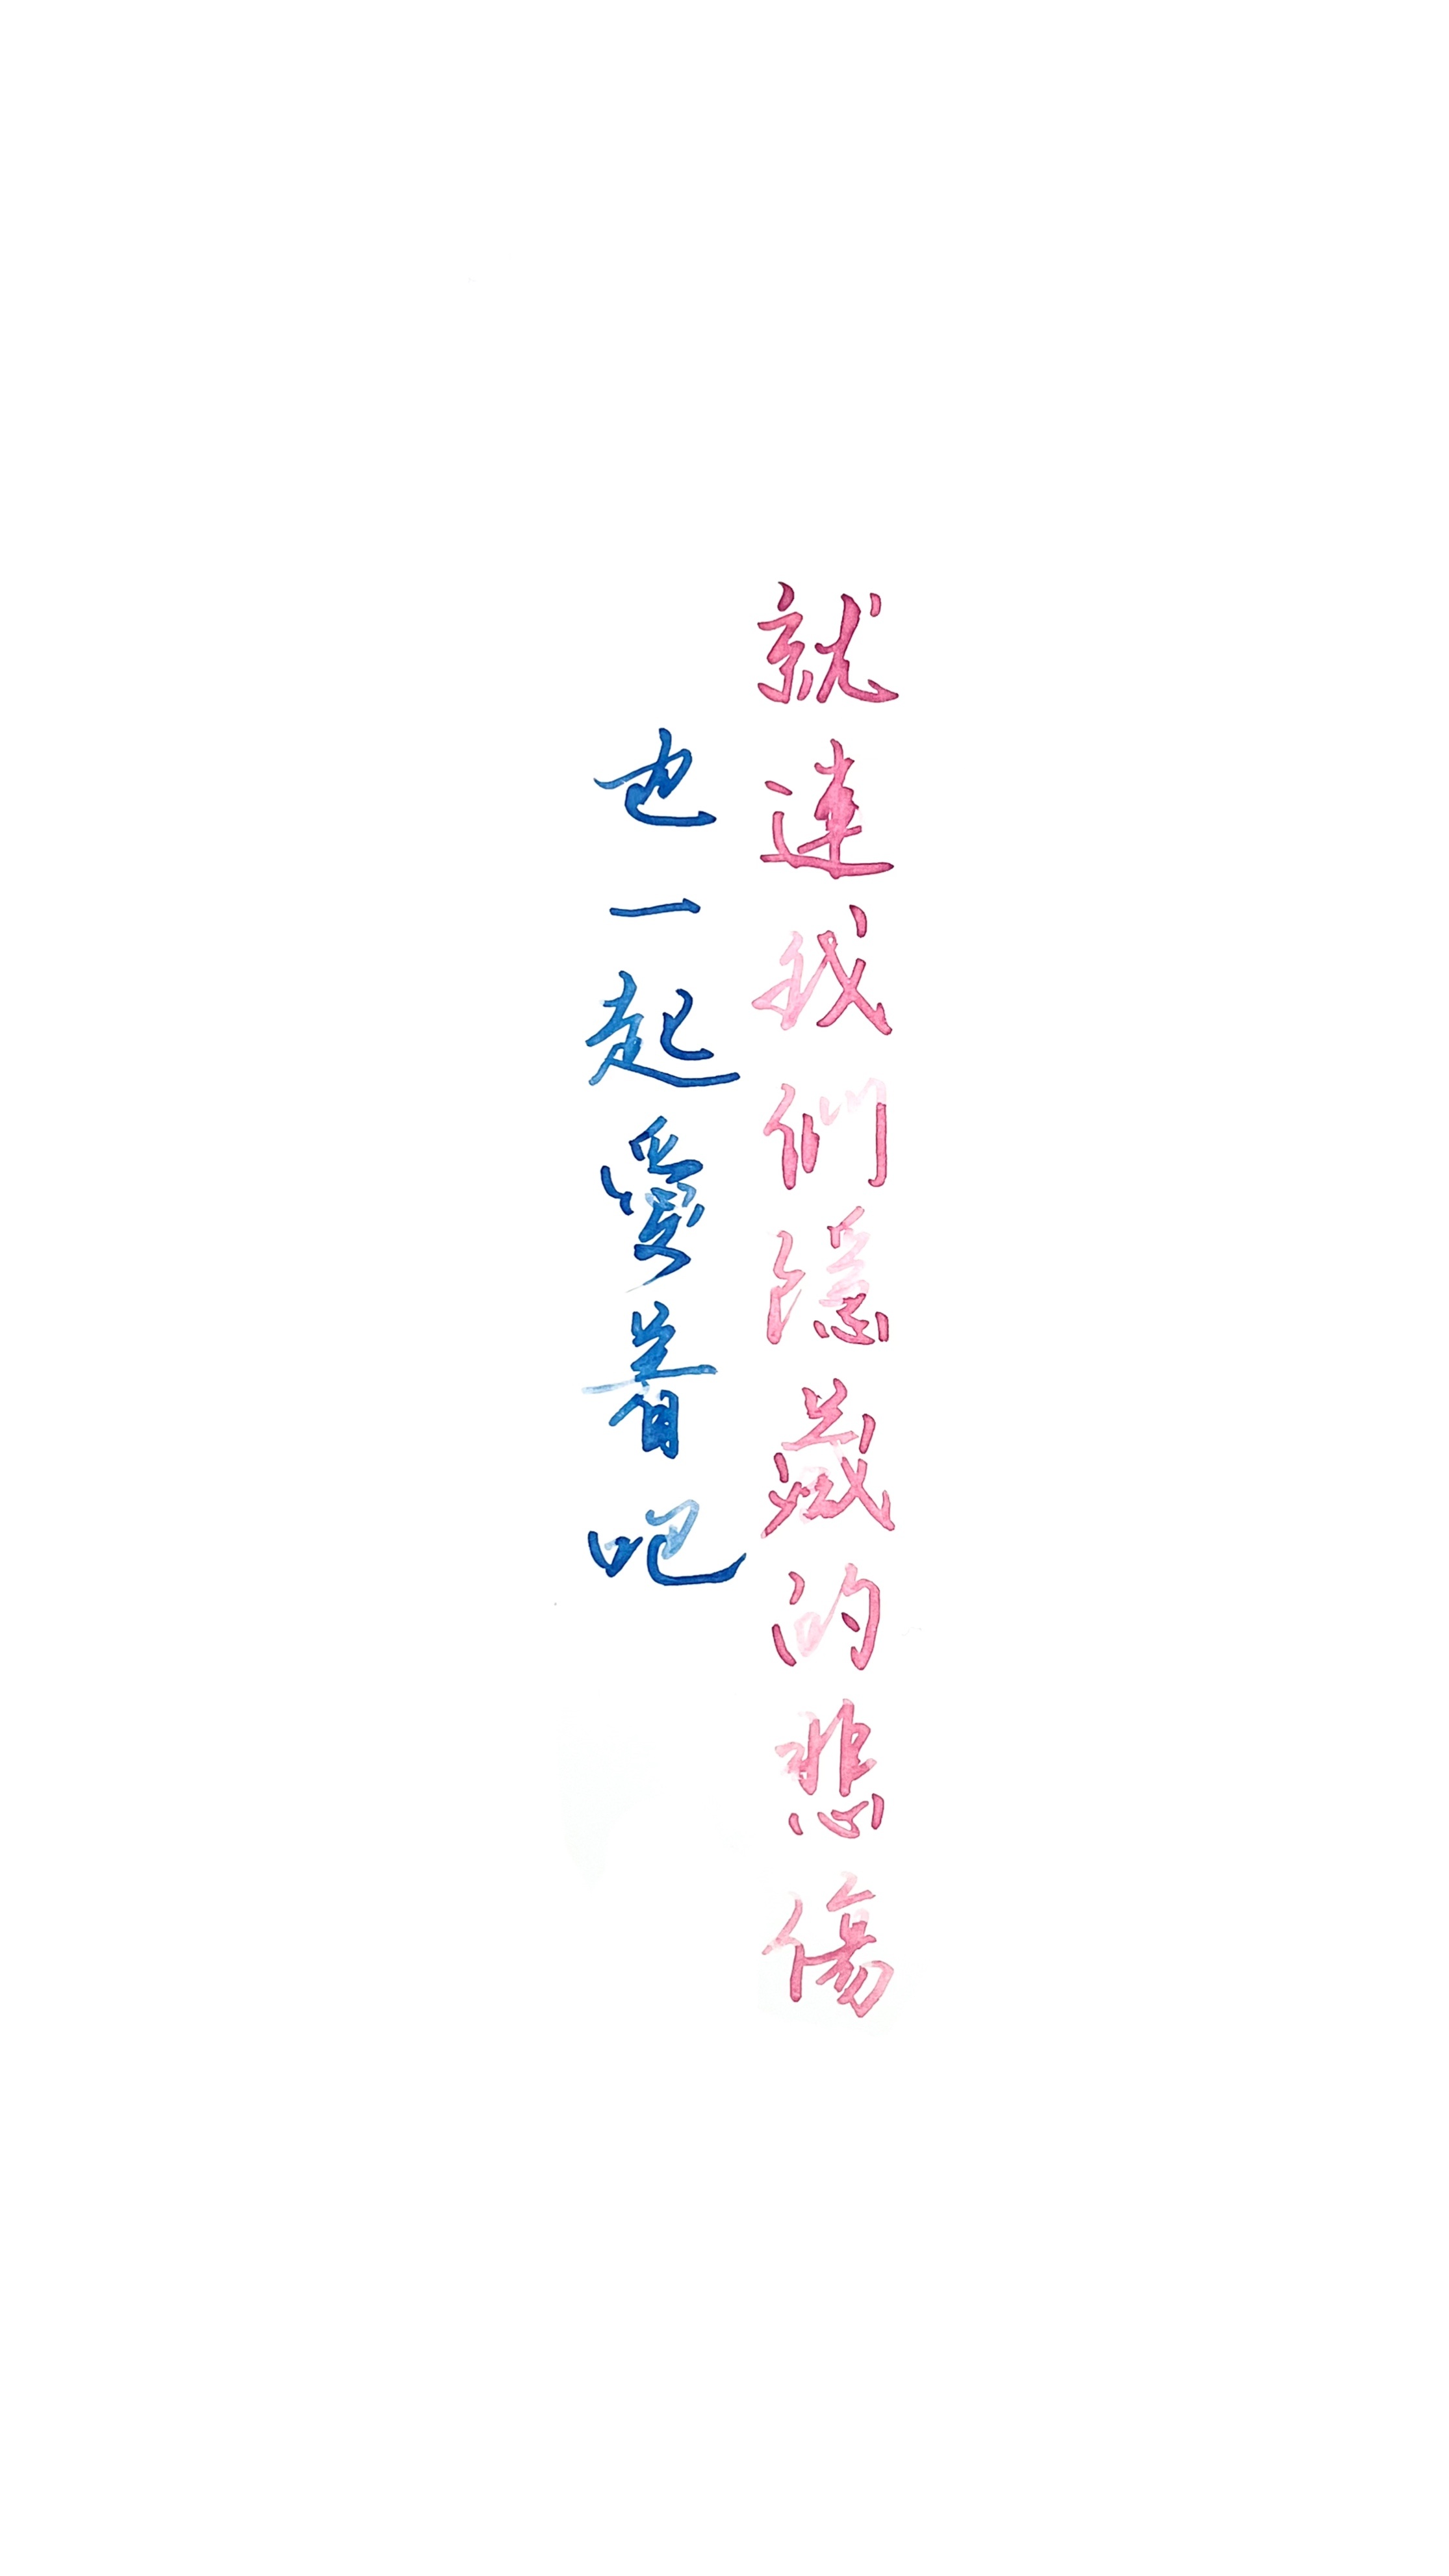 就連我們隱藏的悲傷
也一起愛着吧